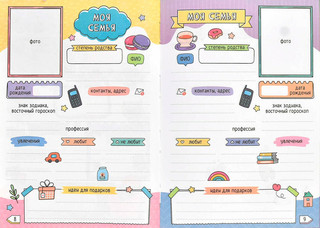 МОЯ
СЕМЬЯ
фото
степень родства
ФИО
дата
рождения
контакты, адрес
знак зодиака,
восточный гороскоп
профессия
увлечения
любит
не любит
идеи для подарков
8
МОЯ СЕМЬЯ
степень родства
фото
ФИО
контакты, адрес
дата
рождения
знак зодиака,
восточный гороскоп
профессия
любит
не любит
увлечения
идеи для подарков
9